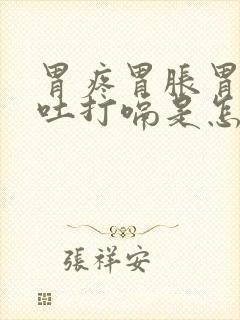 胃疼胃脹胃
吐打嗝是怎
張祥安